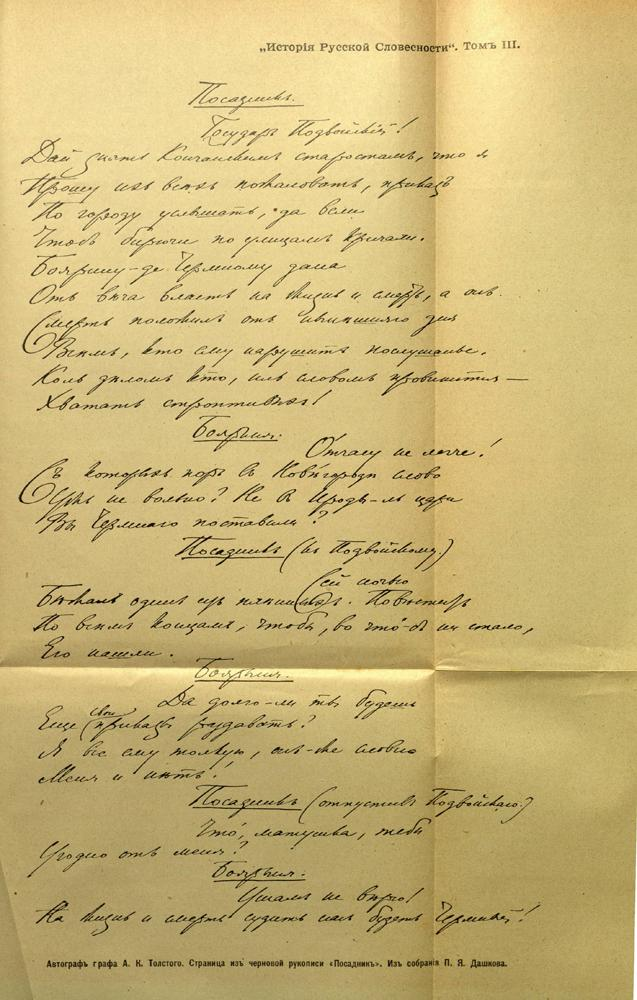 „Исторія Русской Словесности“. Томъ III.
Посадникъ.
Государь Подвойскій!
Дай знать Кончанскимъ старостамъ, что я
Прошу ихъ всѣхъ пожаловать, приказъ
По городу услышать, да вели
Чтобъ бирючи по улицамъ кричали.
Боярину-де Чермному дана
Отъ вѣча власть на жизнь и смерть, а онъ
Смерть положилъ отъ нынѣшняго дня
Всѣмъ, кто ему нарушитъ послушанье.
Коль дѣломъ кто, иль словомъ провинится —
Хватать строптивыхъ!
Боярыня.
Отчасу не легче!
Съ которыхъ поръ въ Новѣгородѣ слово
Ужъ не вольно? Не въ Ироды-ль цари
Вы Чермнаго поставили?
Посадникъ (къ Подвойскому.)
Сей ночью
Бѣжалъ одинъ изъ плѣнныхъ. Повѣстить
По всѣмъ концамъ, чтобы, во что́-бъ ни стало,
Его нашли.
Боярыня.
Да долго-ли ты будешь
Еще свои приказы раздавать?
Я все ему толкую, онъ-же словно
Меня и нѣтъ!
Посадникъ (отпустивъ Подвойскаго.)
Что́, матушка, тебѣ
Угодно отъ меня?
Боярыня.
Ушамъ не вѣрю!
На жизнь и смерть судить насъ будетъ Чермный!
Автографъ графа А. К. Толстого. Страница изъ черновой рукописи «Посадникъ». Изъ собранія П. Я. Дашкова.